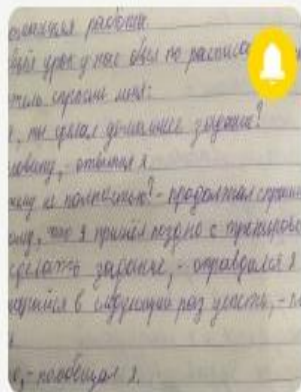 работа
урок у нас был по расписа
спросил меня:
ты сделал домашнее задание?
ловину, - ответил я.
не полностью? - продолжал
ому, что я пришёл поздно с трениров
сделать задание, - оправдался я
в следующий раз учесть, -
- пообещал я.